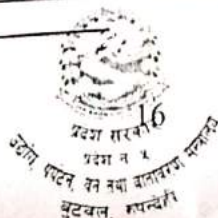 16
प्रदेश सरकार
प्रदेश नं ५
उद्योग, पर्यटन, वन तथा वातावरण मन्त्रालय
बुटवल, रुपन्देही